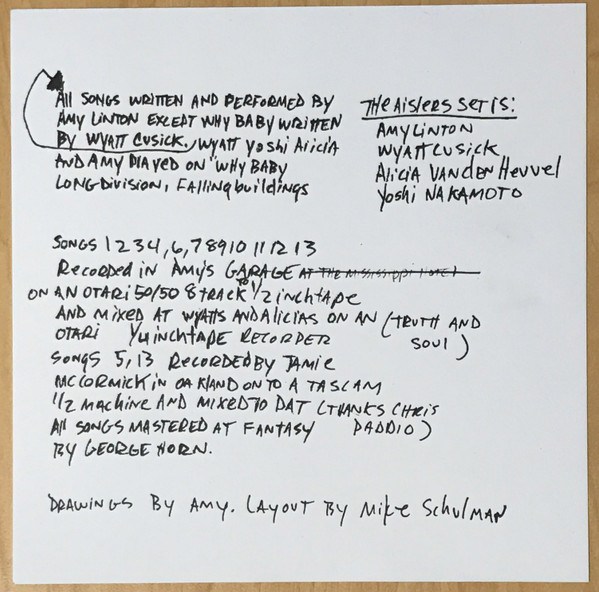 All SONGS WRITTEN AND PERFORMED BY
AMY LINTON EXCEPT WHY BABY WRITTEN
BY WYATT CUSICK, WYATT YOSHI ALICIA
AND AMY PLAYED ON "WHY BABY
LONG DIVISION, FALLING buildings
THE AISLERS SET IS:
AMY LINTON
WYATT CUSICK
Alicia VANDEN Heuvel
Yoshi NAKAMOTO
SONGS 1 2 3 4, 6, 7 8 9 10 11 12 13
Recorded in AMY'S GARAGE AT THE Mississippi Hotel
ON AN OTARI 50/50 8 TRACK TO 1/2 inch tape
AND MIXED AT WYATTS AND ALICIAS ON AN (TRUTH AND SOUL)
OTARI 1/4 inch TAPE RECORDER
SONGS 5, 13 RECORDED BY JAMIE
MCCORMICK IN OAKLAND ON TO A TASCAM
1/2 MACHINE AND MIXED TO DAT (THANKS CHRIS PADDIO)
All SONGS MASTERED AT FANTASY
BY GEORGE HORN.
DRAWINGS BY AMY. LAYOUT BY MIKE SCHULMAN